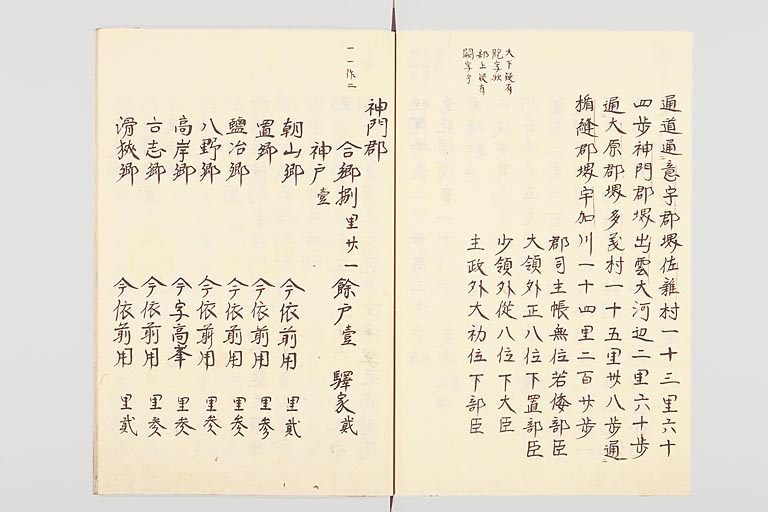 通道通意宇郡堺佐雜村一十三里六十
四步神門郡堺出雲大河辺二里六十步
通大原郡堺多義村一十五里卅八步通
楯縫郡堺宇加川一十四里二百廿步
郡司主帳無位若倭部臣
大領外正八位下置部臣
少領外從八位下大臣
主政外大初位下部臣
大下疑有
脫字欤
部上疑有
闕字乎
神門郡
合鄉捌里廿一餘戶壹 驛家貳
神戶壹
朝山鄉 今依前用 里貳
置鄉 今依前用 里參
鹽冶鄉 今依前用 里參
八野鄉 今依前用 里參
高岸鄉 今字高峯 里參
古志鄉 今依前用 里參
滑狹鄉 今依前用 里貳